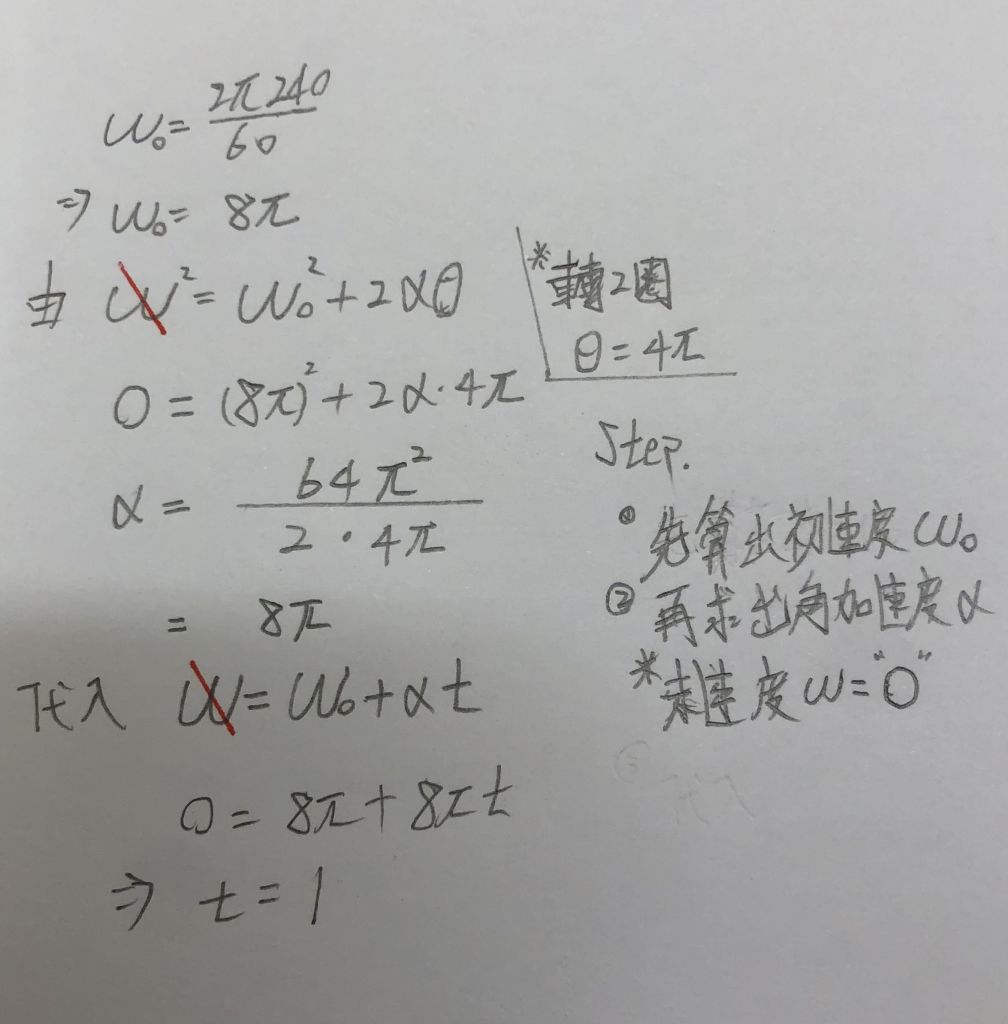 ω₀ = 2π240/60
⇒ ω₀ = 8π
由 ω² = ω₀² + 2αθ
*轉2圈
θ = 4π
0 = (8π)² + 2α·4π
α = 64π²/2·4π
= 8π
代入 ω = ω₀ + αt
0 = 8π + 8πt
⇒ t = 1
Step.
① 先算出初速度ω₀
② 再求出角加速度α
*末速度ω = "0"